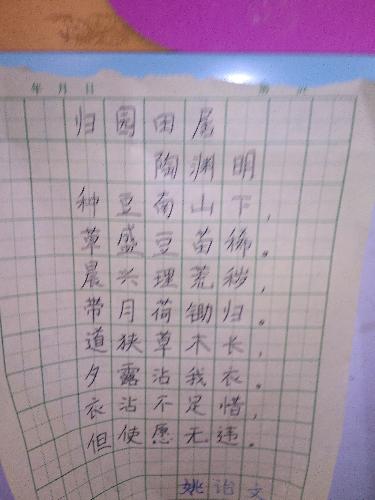 年 月 日
归园田尾
陶渊明
种豆南山下，
草盛豆苗稀。
晨兴理荒秽，
带月荷锄归。
道狭草木长，
夕露沾我衣。
衣沾不足惜，
但使愿无违。
姚诒文